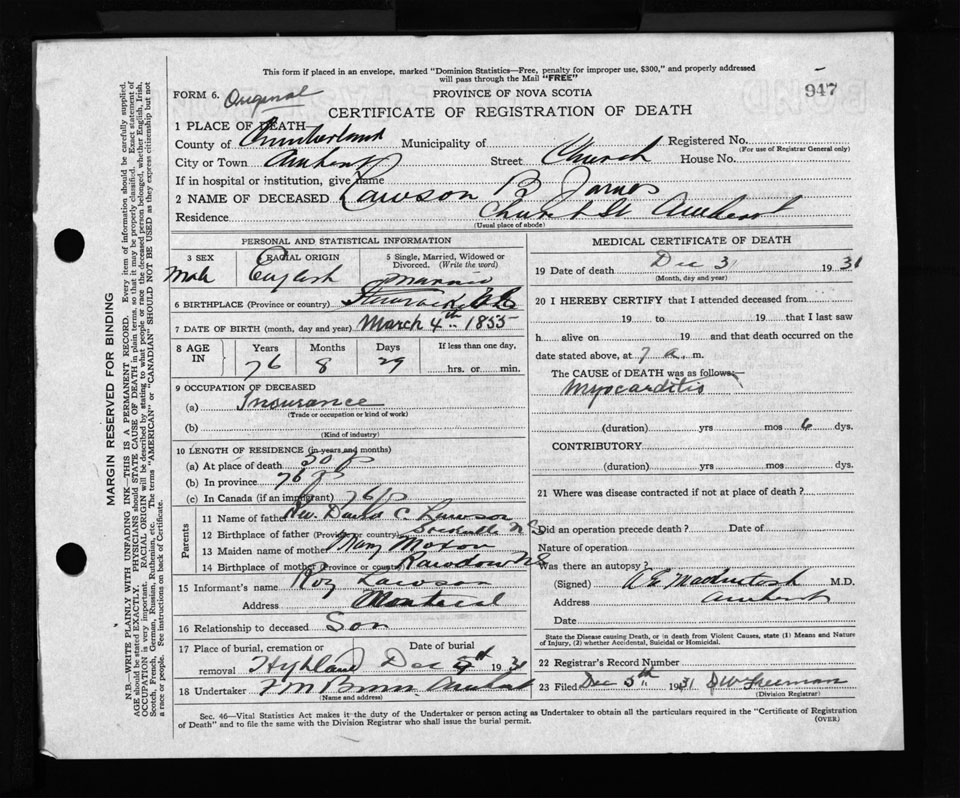 This form if placed in an envelope, marked "Dominion Statistics—Free, penalty for improper use, $300," and properly addressed
will pass through the Mail "FREE"
947
FORM 6. Original
PROVINCE OF NOVA SCOTIA
CERTIFICATE OF REGISTRATION OF DEATH
1 PLACE OF DEATH
County of Cumberland Municipality of Registered No.
(For use of Registrar General only)
City or Town Amherst Street Church House No.
If in hospital or institution, give name
2 NAME OF DECEASED Lawson B James
Residence Church St Amherst
(Usual place of abode)
PERSONAL AND STATISTICAL INFORMATION
3 SEX Male
RACIAL ORIGIN English
5 Single, Married, Widowed or Divorced. (Write the word) Married
6 BIRTHPLACE (Province or country)
7 DATE OF BIRTH (month, day and year) March 4th 1855
8 AGE IN Years 76 Months 8 Days 29 If less than one day, hrs. or min.
9 OCCUPATION OF DECEASED
(a) Insurance
(Trade or occupation or kind of work)
(b)
(Kind of industry)
10 LENGTH OF RESIDENCE (in years and months)
(a) At place of death 50
(b) In province 76
(c) In Canada (if an immigrant) 76
Parents
11 Name of father Rev. David C. Lawson
12 Birthplace of father (Province or country) N S
13 Maiden name of mother Mary
14 Birthplace of mother (Province or country) Rawdon N S
15 Informant's name Roy Lawson
Address Montreal
16 Relationship to deceased Son
17 Place of burial, cremation or removal Highland Date of burial Dec 5th 1931
18 Undertaker Amherst
(Name and address)
MEDICAL CERTIFICATE OF DEATH
19 Date of death Dec 3 1931
(Month, day and year)
20 I HEREBY CERTIFY that I attended deceased from
19 to 19 that I last saw
h alive on 19 and that death occurred on the
date stated above, at 7 a. m.
The CAUSE of DEATH was as follows:—
Myocarditis
(duration) yrs mos 6 dys.
CONTRIBUTORY
(duration) yrs mos dys.
21 Where was disease contracted if not at place of death?
Did an operation precede death? Date of
Nature of operation
Was there an autopsy?
(Signed) A E Mackintosh M.D.
Address Amherst
Date
State the Disease causing Death, or in death from Violent Causes, state (1) Means and Nature
of Injury, (2) whether Accidental, Suicidal or Homicidal.
22 Registrar's Record Number
23 Filed Dec 5th 1931 Freeman
(Division Registrar)
Sec. 46—Vital Statistics Act makes it the duty of the Undertaker or person acting as Undertaker to obtain all the particulars required in the "Certificate of Registration
of Death" and to file the same with the Division Registrar who shall issue the burial permit.
(OVER)
MARGIN RESERVED FOR BINDING
N.B.—WRITE PLAINLY WITH UNFADING INK—THIS IS A PERMANENT RECORD. Every item of information should be carefully supplied.
AGE should be stated EXACTLY. PHYSICIANS should STATE CAUSE OF DEATH in plain terms, so that it may be properly classified. Exact statement of
OCCUPATION is very important. RACIAL ORIGIN will be described by stating to what people or race the deceased person belonged, whether English, Irish,
Scotch, French, German, Russian, Ruthenian, etc. The terms "AMERICAN" or "CANADIAN" SHOULD NOT BE USED as they express citizenship but not
a race or people. See instructions on back of Certificate.